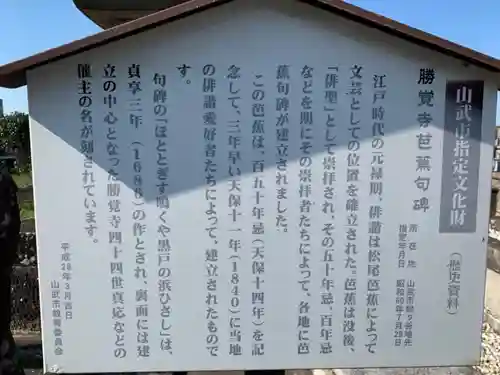 山武市指定文化財
(歴史資料)
勝覚寺芭蕉句碑
所在地　山武市松ヶ谷
指定年月日　昭和60年7月28日
江戸時代の元禄期、俳諧は松尾芭蕉によって
文芸としての位置を確立された。芭蕉は没後、
「俳聖」として崇拝され、その五十年忌、百年忌
などを期にその崇拝者たちによって、各地に芭
蕉句碑が建立されました。
この芭蕉は、百五十年忌(天保十四年)を記
念して、三年早い天保十一年(1840)に当地
の俳諧愛好者たちによって、建立されたもので
す。
句碑の「ほととぎす鳴くや黒戸の浜ひさし」は、
貞享三年(1686)の作とされ、裏面には建
立の中心となった勝覚寺四十四世真応などの
催主の名が刻されています。
平成28年3月吉日
山武市教育委員会